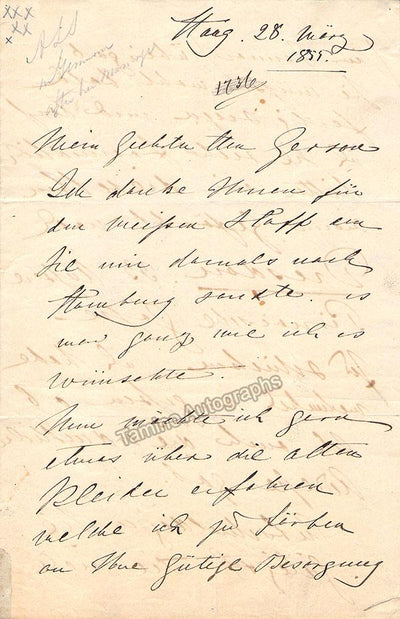 xxx
xx
x
ALS
in German
after her marriage
Haag. 28. März
1855.
1736
Mein Geehrter Herr Gerson
Ich danke Ihnen für
den weißen Stoff den
Sie mir damals nach
Hamburg sandte. es
war ganz wie ich es
wünschte. —
Nun möchte ich gern
etwas über die alten
Kleider erfahren
welche ich zu färben
an Ihre Gütige Besorgung
Tamino Autographs